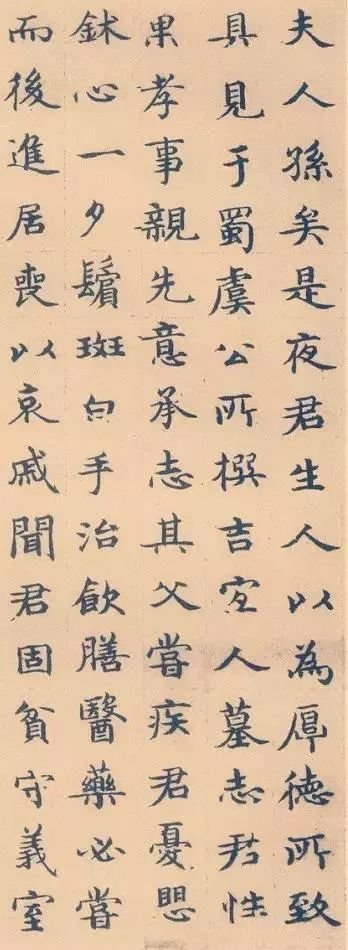 夫人孫矣是夜君生人以為厚德所致
具見于蜀虞公所撰吉宜人墓志君性
果孝事親先意承志其父嘗疾君憂愳
鉥心一夕鬢斑白手治飲膳醫藥必嘗
而後進居喪以哀戚聞君固貧守義室